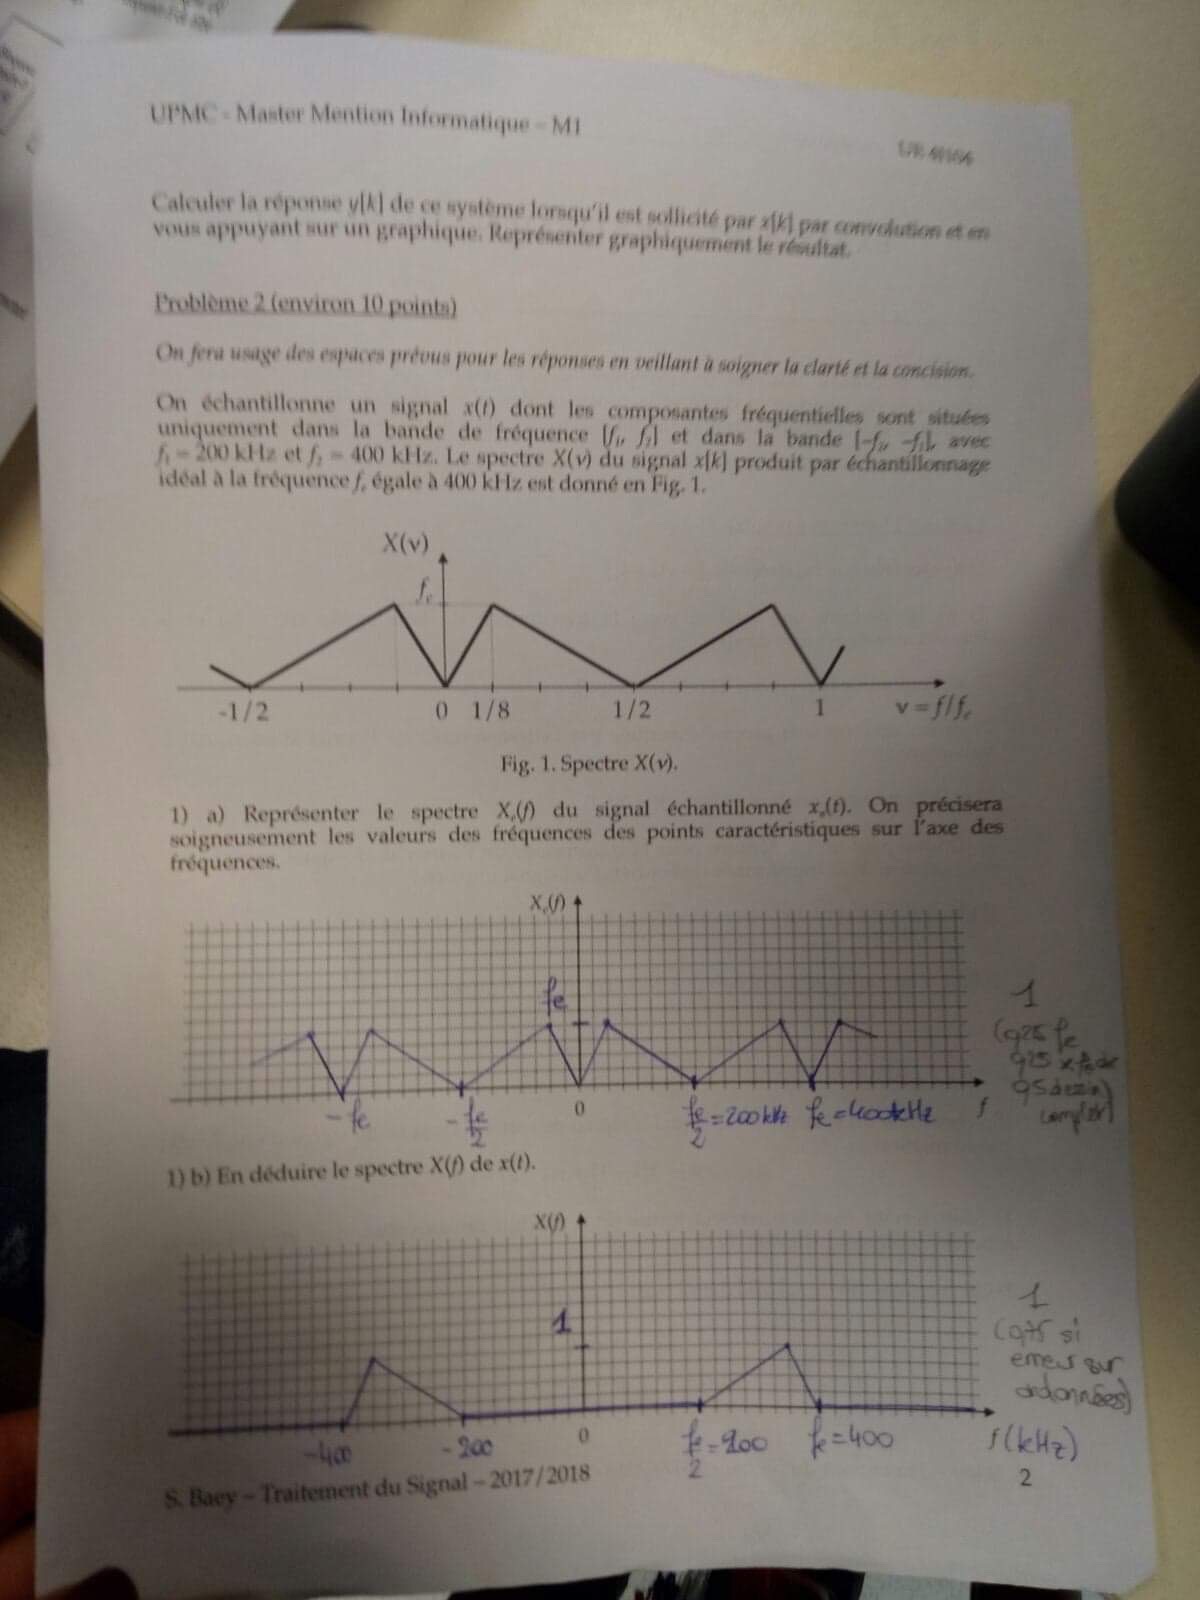 UPMC - Master Mention Informatique - M1
Calculer la réponse y[k] de ce système lorsqu'il est sollicité par x[k] par convolution et en
vous appuyant sur un graphique. Représenter graphiquement le résultat.
Problème 2 (environ 10 points)
On fera usage des espaces prévus pour les réponses en veillant à soigner la clarté et la concision.
On échantillonne un signal x(t) dont les composantes fréquentielles sont situées
uniquement dans la bande de fréquence [f₁, f₂] et dans la bande [-f₂, -f₁], avec
f₁ = 200 kHz et f₂ = 400 kHz. Le spectre X(ν) du signal x[k] produit par échantillonnage
idéal à la fréquence fₑ égale à 400 kHz est donné en Fig. 1.
X(ν)
fₑ
-1/2 0 1/8 1/2 1 ν = f/fₑ
Fig. 1. Spectre X(ν).
1) a) Représenter le spectre Xₑ(f) du signal échantillonné xₑ(t). On précisera
soigneusement les valeurs des fréquences des points caractéristiques sur l'axe des
fréquences.
Xₑ(f)
fe
1
(0,25 fe
0,25 x fe de
0,5 dessin
-fe -fe/2 0 fe/2 = 200 kHz fe = 400 kHz f
1) b) En déduire le spectre X(f) de x(t).
X(f)
1
1
(0,75 si
erreur sur
ordonnées)
-400 -200 0 fe/2 = 200 fe = 400 f (kHz)
S. Baey – Traitement du Signal – 2017/2018
2